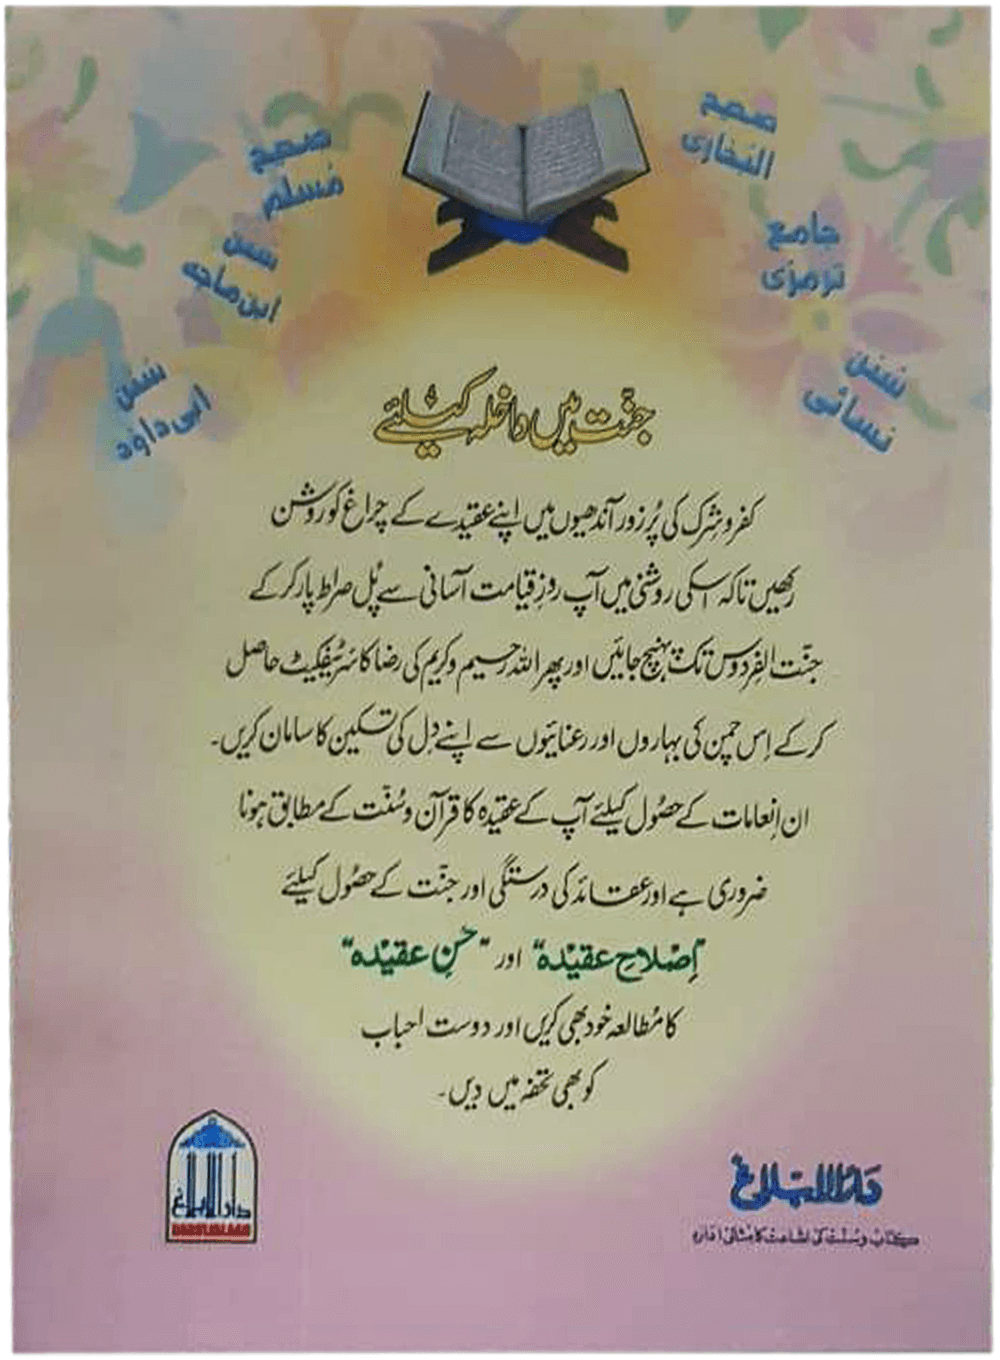 صحیح
البخاری
صحیح
مُسلم
جامع
ترمزی
سنن
ابن ماجه
سُنن
نسائی
سُنن
ابی داؤد
جنّت میں داخلہ کیلئے
کفر و شِرک کی پُر زور آندھیوں میں اپنے عقیدے کے چراغ کو روشن
رکھیں تاکہ اسکی روشنی میں آپ روزِ قیامت آسانی سے پُل صراط پار کر کے
جنّت الفِردوس تک پہنچ جائیں اور پھر اللہ رحیم و کریم کی رضا کا سرٹیفکیٹ حاصل
کر کے اِس چمن کی بہاروں اور رعنائیوں سے اپنے دِل کی تسکین کا سامان کریں۔
ان اِنعامات کے حصُول کیلئے آپ کے عقیدہ کا قرآن و سُنّت کے مطابق ہونا
ضروری ہے اور عقائد کی درستگی اور جنّت کے حصُول کیلئے
"اِصْلاحِ عقیْدہ" اور "حُسنِ عقیْدہ"
کا مُطالعہ خود بھی کریں اور دوست احباب
کو بھی تحفہ میں دیں۔
دارالابلاغ
DARUL IBLAGH
دَارُالابلاغ
کتاب و سُنّت کی اشاعت کا مثالی ادارہ